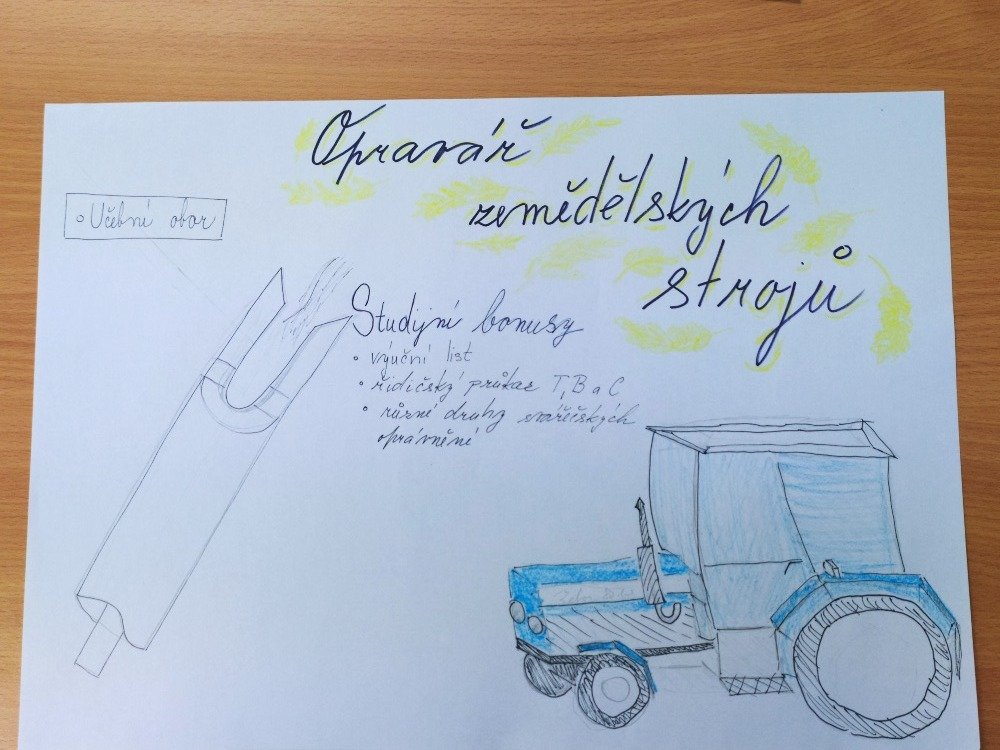 Opravář
zemědělských
strojů
• Učební obor
Studijní bonusy
• výuční list
• řidičský průkaz T, B a C
• různé druhy svářečských
oprávnění